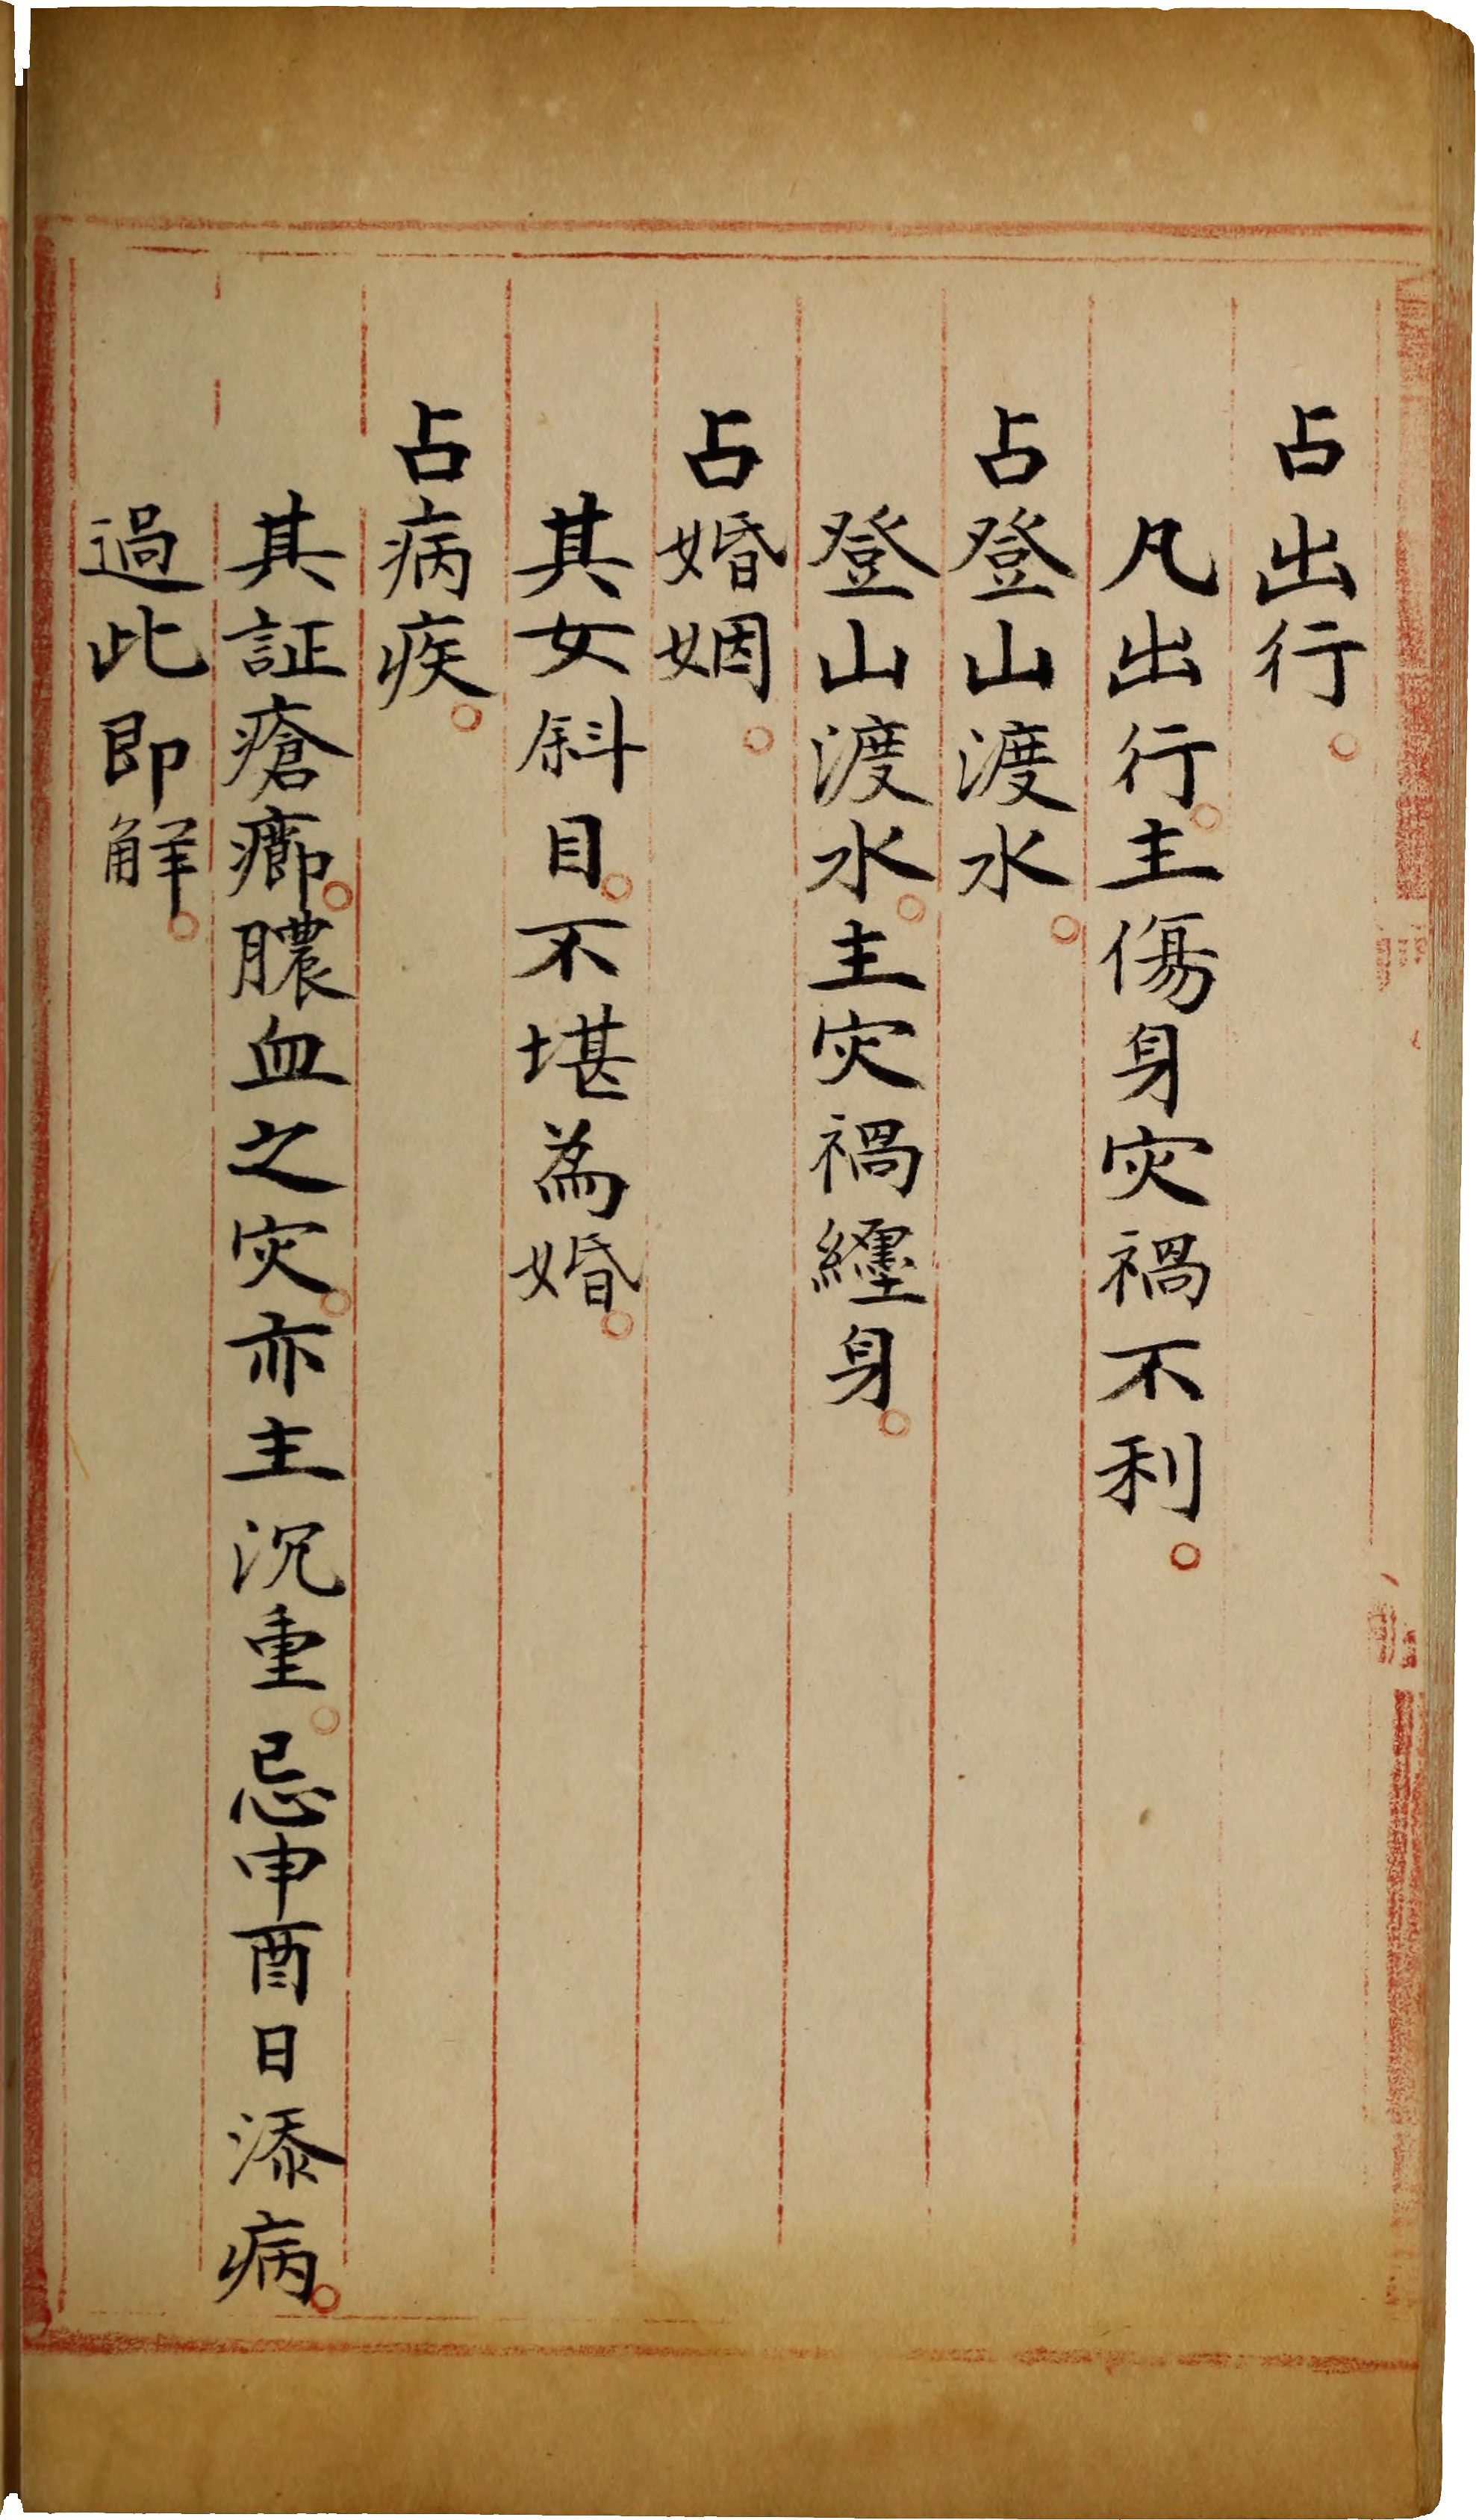 占出行。
凡出行。主傷身灾禍不利。
占登山渡水。
登山渡水。主灾禍纏身。
占婚姻。
其女斜目。不堪為婚。
占病疾。
其証瘡癤。膿血之灾。亦主沉重。忌申酉日添病。
過此即解。